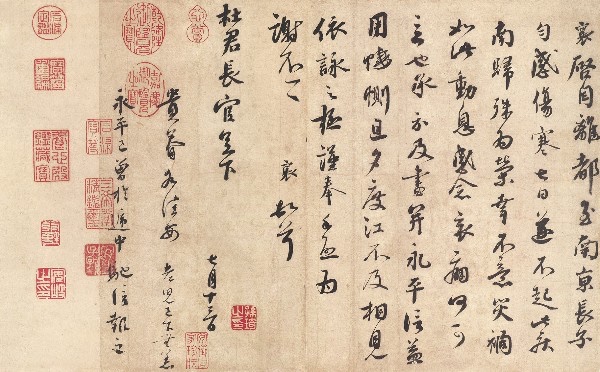 襄啓自離都至南京長子
勻感傷寒七日遂不起此疾
南歸殊為榮幸不意災禍
如此動息感念哀痛何可
言也承示及書并永平信益
用悽惻旦夕度江不及相見
依詠之極謹奉手疏為
謝不一一 襄頓首
杜君長官足下
七月十三日
貴眷各佳安老兒已下無恙
永平已曾於遞中馳信報之